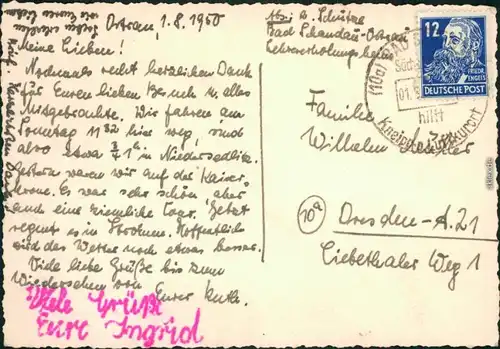 Ostrau, 1.8.1950
Meine Lieben!
Nochmals recht herzlichen Dank
für Euren lieben Besuch u. alles
Mitgebrachte. Wir fahren am
Sonntag 11 32 hier weg, sind
also etwa 3/4 1 h in Niedersedlitz.
Gestern waren wir auf der Kaiser-
krone. Es war sehr schön, aber
auch eine ziemliche Tour. Jetzt
regnet es in Strömen. Hoffentlich
wird das Wetter noch etwas besser.
Viele liebe Grüße bis zum
Wiedersehen von Eurer Ruth.
Viele Grüße
Eure Ingrid
Abs: R. Schütze
Bad Schandau-Ostrau
Lehrererholungsheim
12
FRIEDR. ENGELS
DEUTSCHE POST
(10a) BAD
hilft
Kneippkurort
Familie
Wilhelm
10a
Dresden-A.21
Liebethaler Weg 1